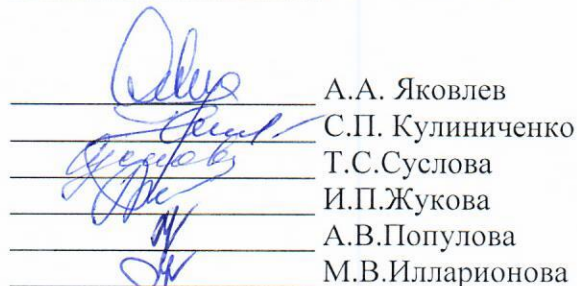 А.А. Яковлев
С.П. Кулиниченко
Т.С.Суслова
И.П.Жукова
А.В.Популова
М.В.Илларионова